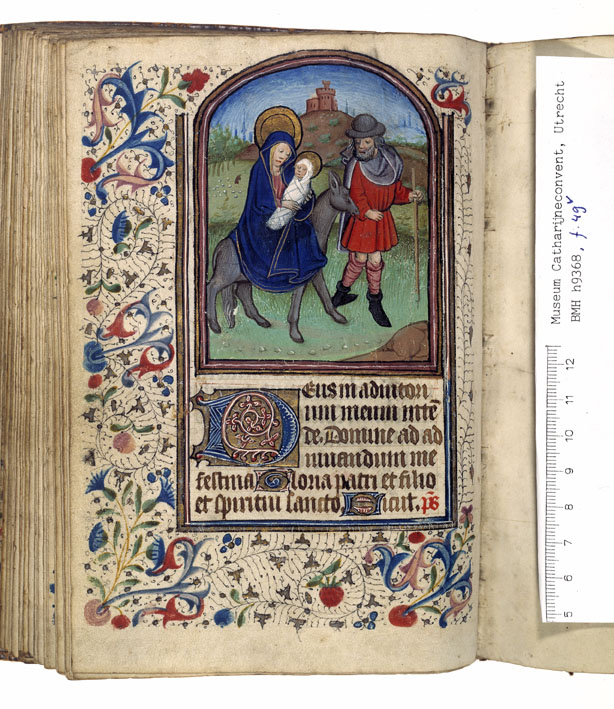 Deus in adiutori
um meum inte̅
de. Domine ad ad
iuuandum me
festina Gloria patri et filio
et spiritui sancto Sicut. ps̅
Museum Catharijneconvent, Utrecht
BMH h9368, f. 49v
5 6 7 8 9 10 11 12